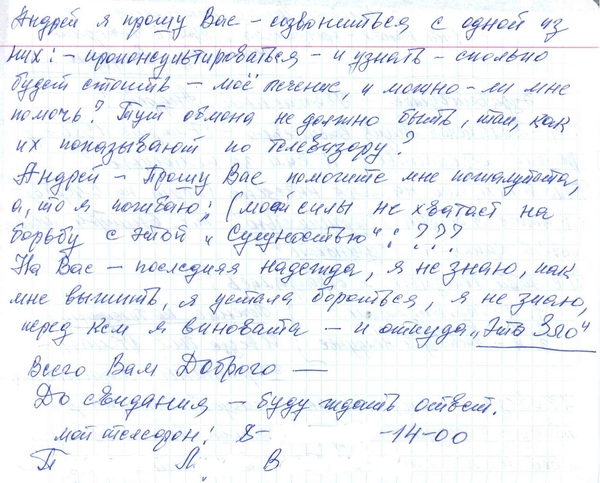 Андрей я прошу Вас – созвониться с одной из
них: – проконсультироваться – и узнать – сколько
будет стоить – моё лечение, и можно – ли мне
помочь? Тут обмана не должно быть, так, как
их показывают по телевизору?
Андрей – Прошу Вас помогите мне пожалуйста,
а, то я погибаю; (моей силы не хватает на
борьбу с этой „Сущностью“: ???
На Вас – последняя надежда, я не знаю, как
мне выжить, я устала бороться, я не знаю,
перед кем я виновата – и откуда „это Зло“
Всего Вам Доброго —
До Свидания – буду ждать ответ.
мой телефон: 8- -14-00
П Л. В